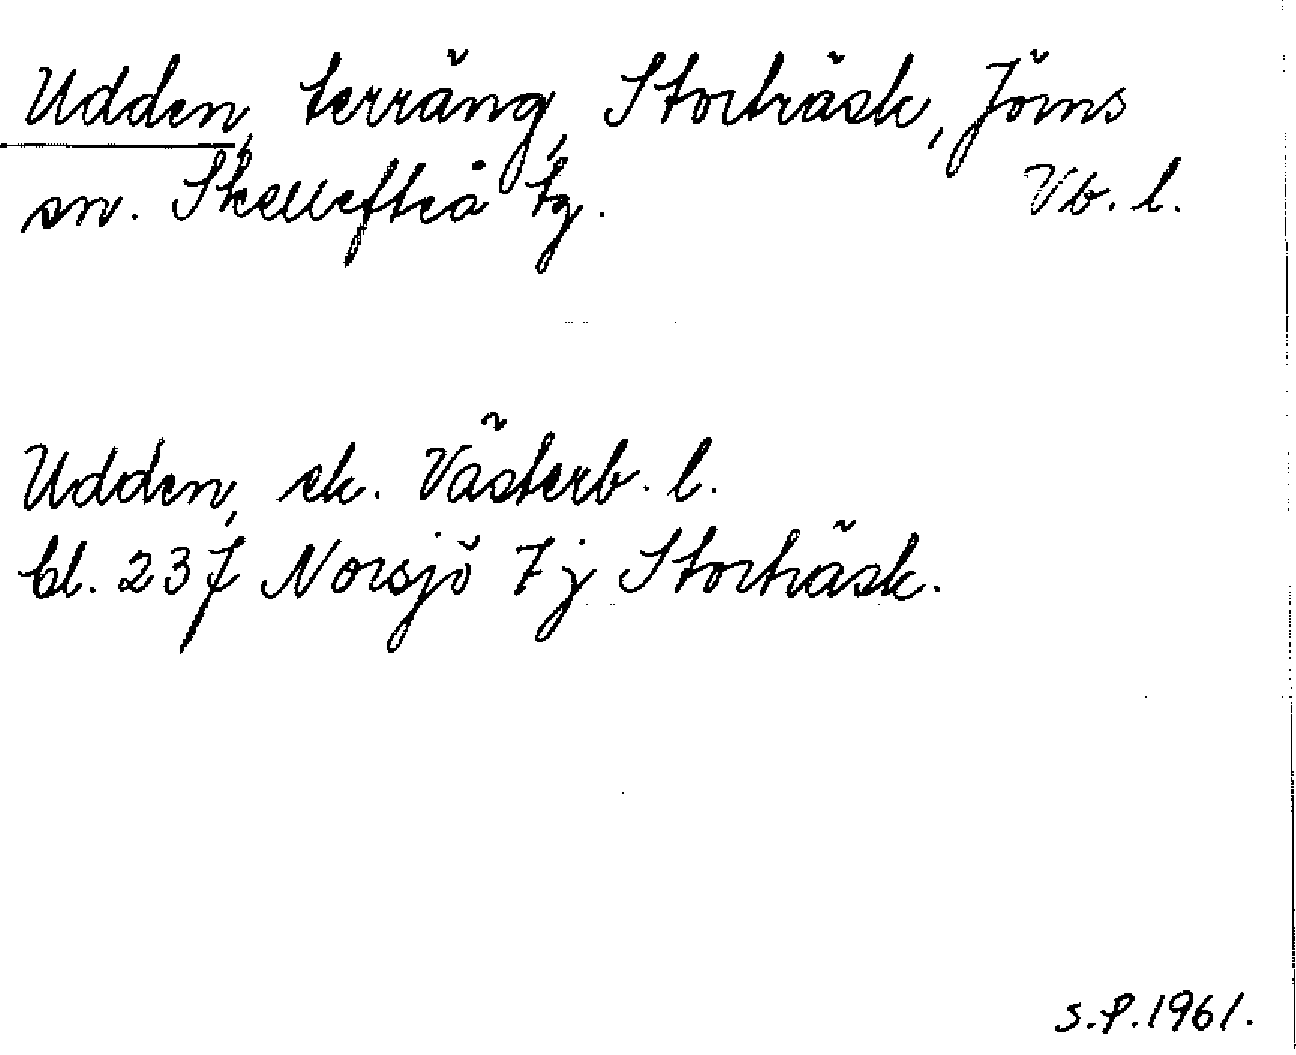 Udden, terräng, Storträsk, Jörns
sn. Skellefteå tg. Vb. l.
Udden, ek. Västerb. l.
bl. 237 Norsjö 7 j Storträsk.
S.P. 1961.